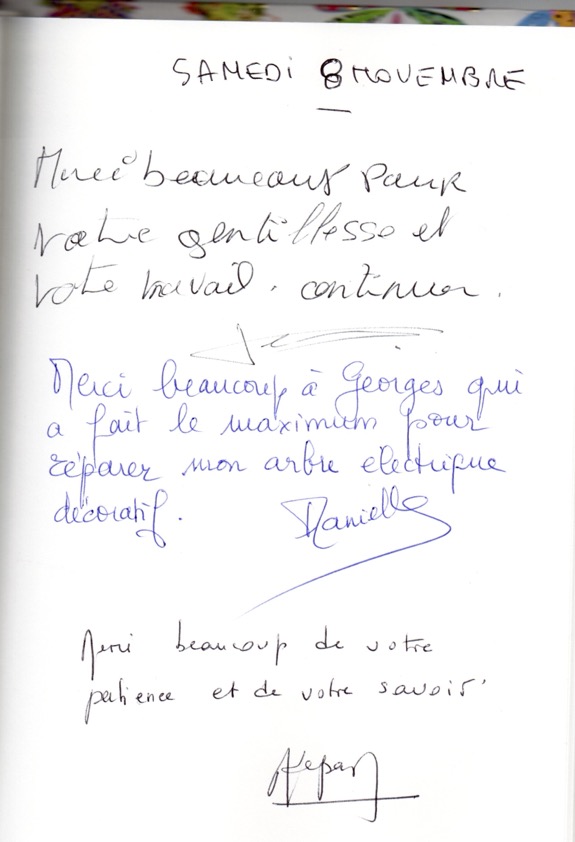 SAMEDI 8 NOVEMBRE
Merci beaucoup pour
votre gentillesse et
vote travail. continuer.
Merci beaucoup à Georges qui
a fait le maximum pour
réparer mon arbre electrique
décoratif.
Danielle
Merci beaucoup de votre
patience et de votre savoir